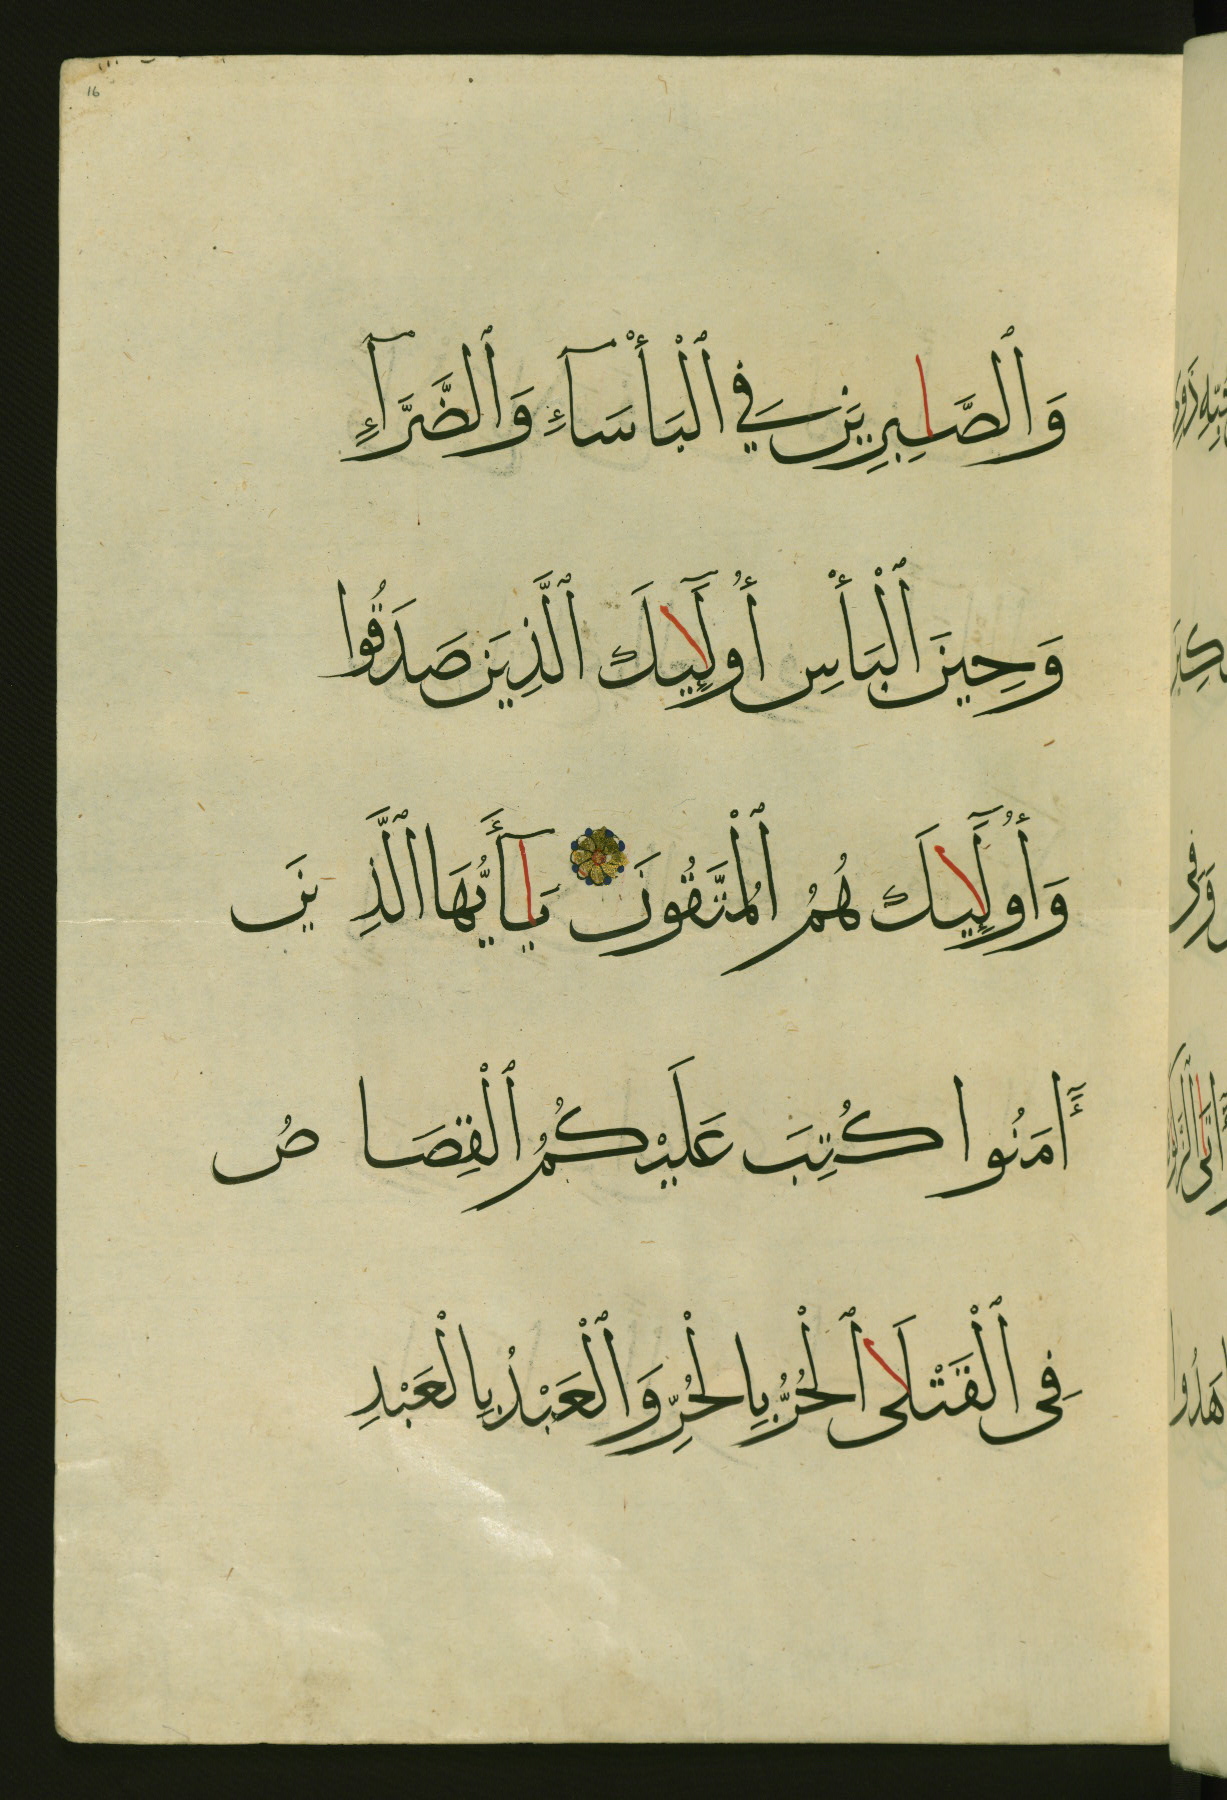 16
وَٱلصَّـٰبِرِينَ فِي ٱلْبَأْسَآءِ وَٱلضَّرَّآءِ
وَحِينَ ٱلْبَأْسِ أُولَـٰٓئِكَ ٱلَّذِينَ صَدَقُوا
وَأُولَـٰٓئِكَ هُمُ ٱلْمُتَّقُونَ يَـٰٓأَيُّهَا ٱلَّذِينَ
ءَامَنُوا كُتِبَ عَلَيْكُمُ ٱلْقِصَاصُ
فِى ٱلْقَتْلَىٰ ٱلْحُرُّ بِالْحُرِّ وَٱلْعَبْدُ بِالْعَبْدِ